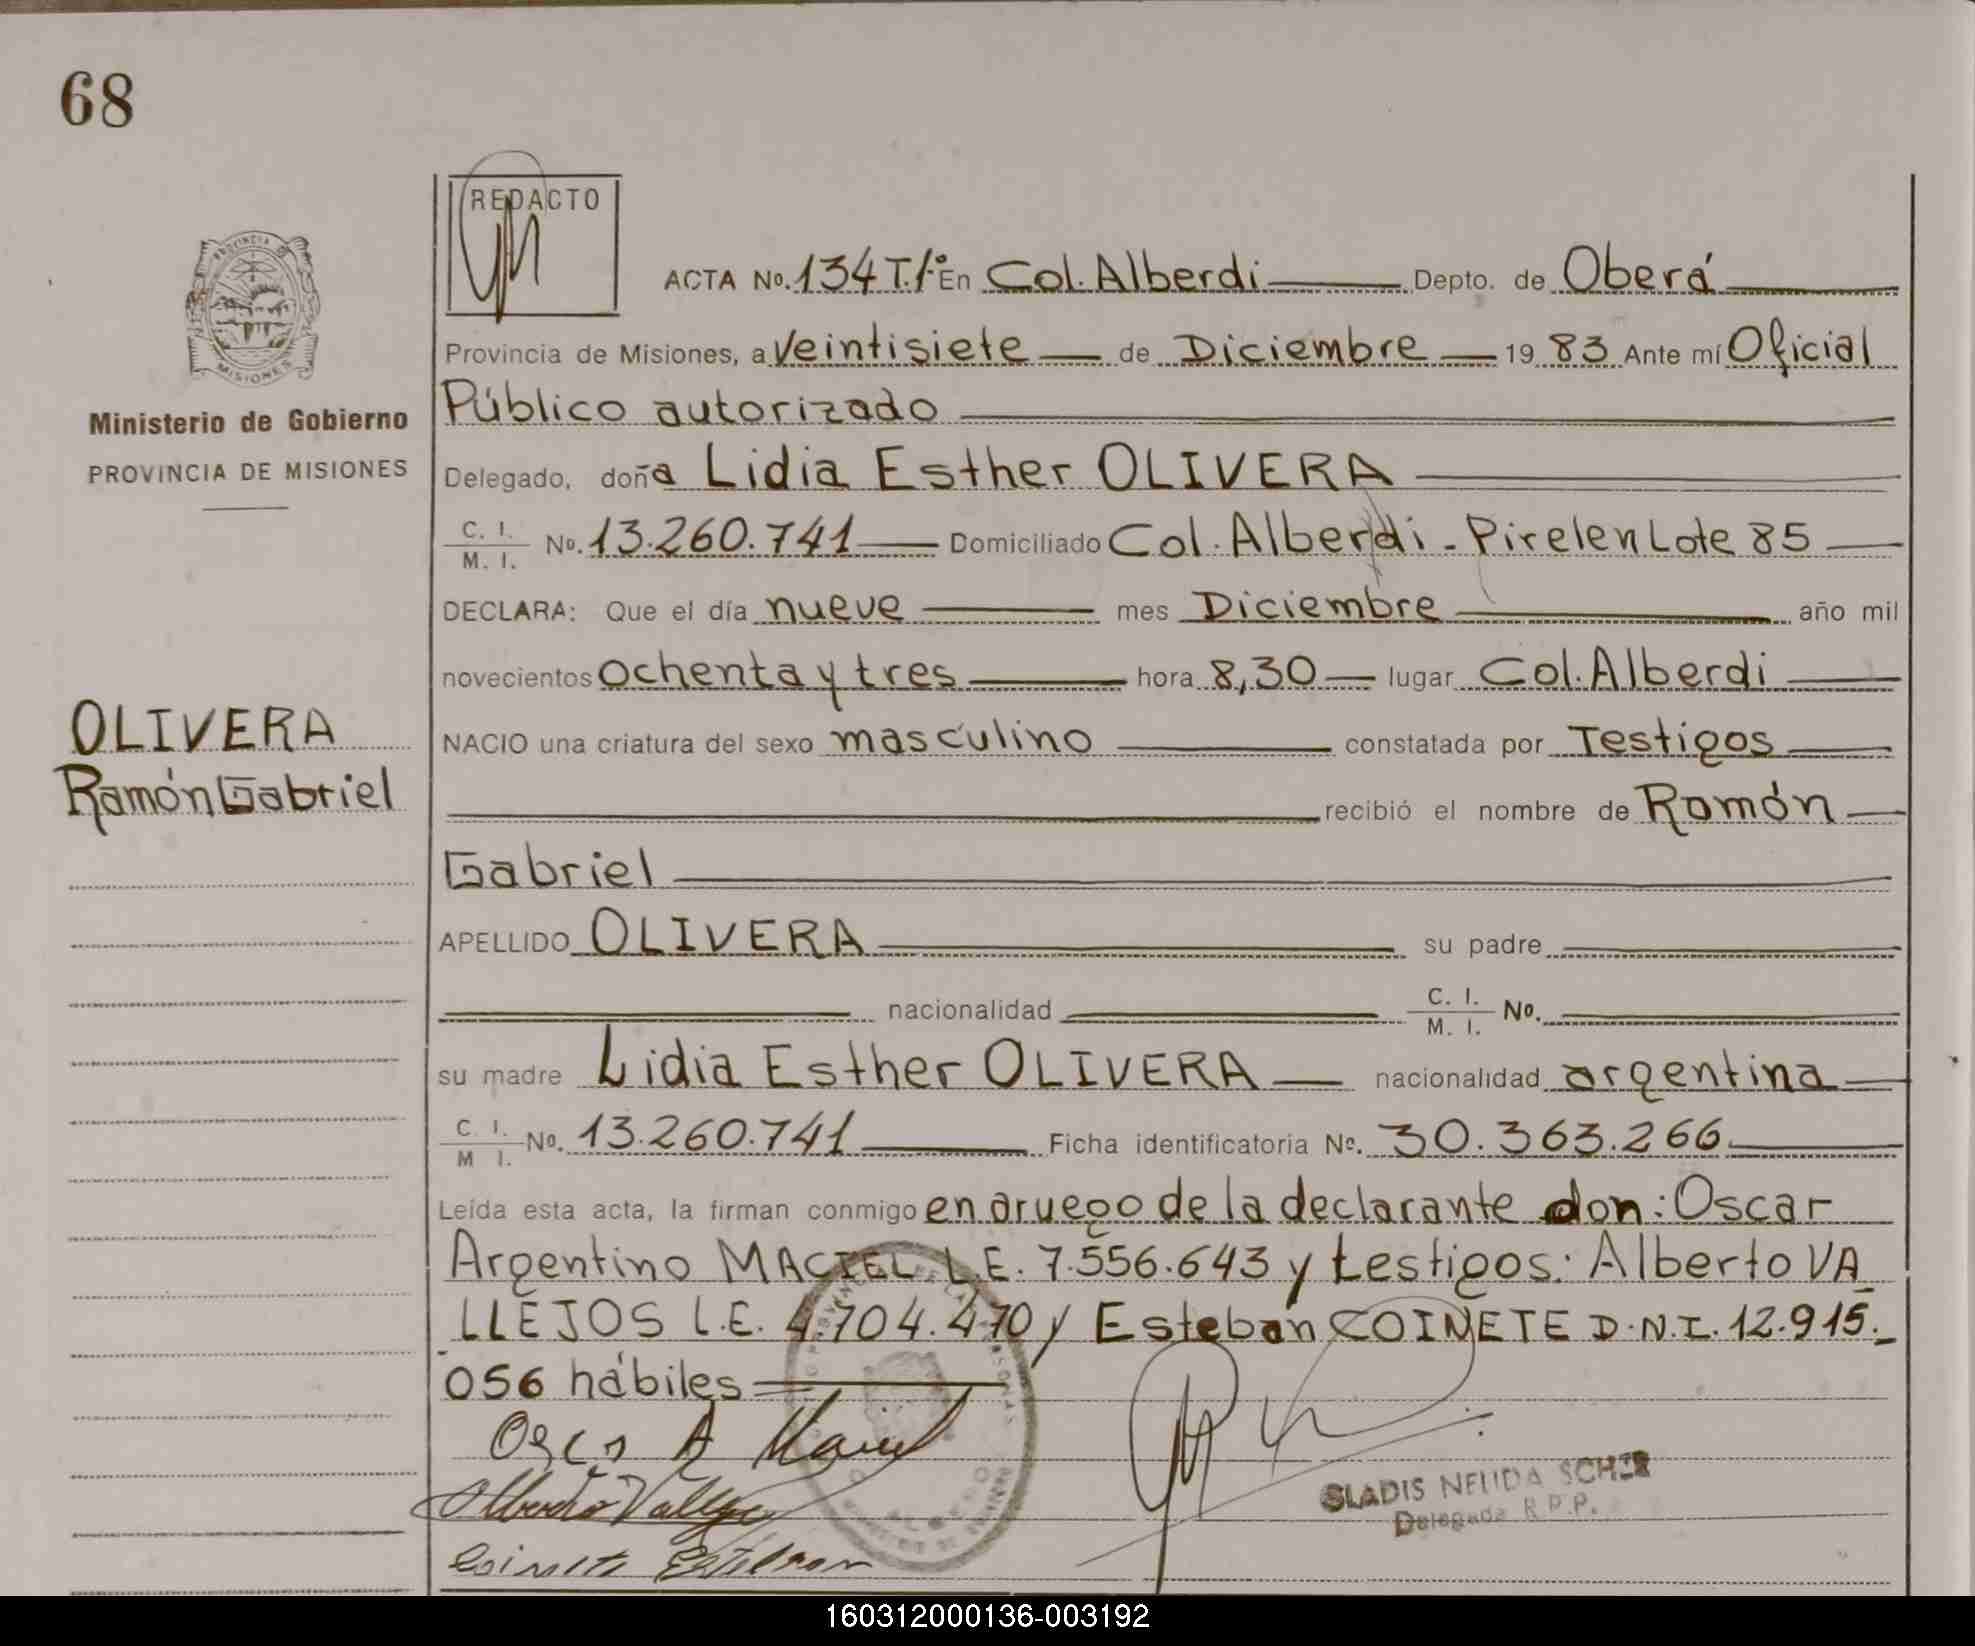 68
REDACTO
ACTA No. 134 T.1º En Col. Alberdi Depto. de Oberá
Provincia de Misiones, a veintisiete de Diciembre 19 83 Ante mí Oficial
Público autorizado
Ministerio de Gobierno
PROVINCIA DE MISIONES
Delegado, doña Lidia Esther OLIVERA
C. I. / M. I. No. 13.260.741 Domiciliado Col. Alberdi - Pirelen Lote 85
DECLARA: Que el día nueve mes Diciembre año mil
novecientos ochenta y tres hora 8,30 lugar Col. Alberdi
OLIVERA
Ramón Gabriel
NACIO una criatura del sexo masculino constatada por Testigos
recibió el nombre de Ramón
Gabriel
APELLIDO OLIVERA su padre
nacionalidad C. I. / M. I. No.
su madre Lidia Esther OLIVERA nacionalidad argentina
C. I. / M I. No. 13.260.741 Ficha identificatoria No. 30.363.266
Leída esta acta, la firman conmigo en aruego de la declarante don: Oscar
Argentino MACIEL L.E. 7.556.643 y testigos: Alberto VA
LLEJOS L.E. 4.704.470 y Esteban COINETE D.N.I. 12.915.
056 hábiles
GLADIS NELIDA
Delegada R.P.P.
160312000136-003192